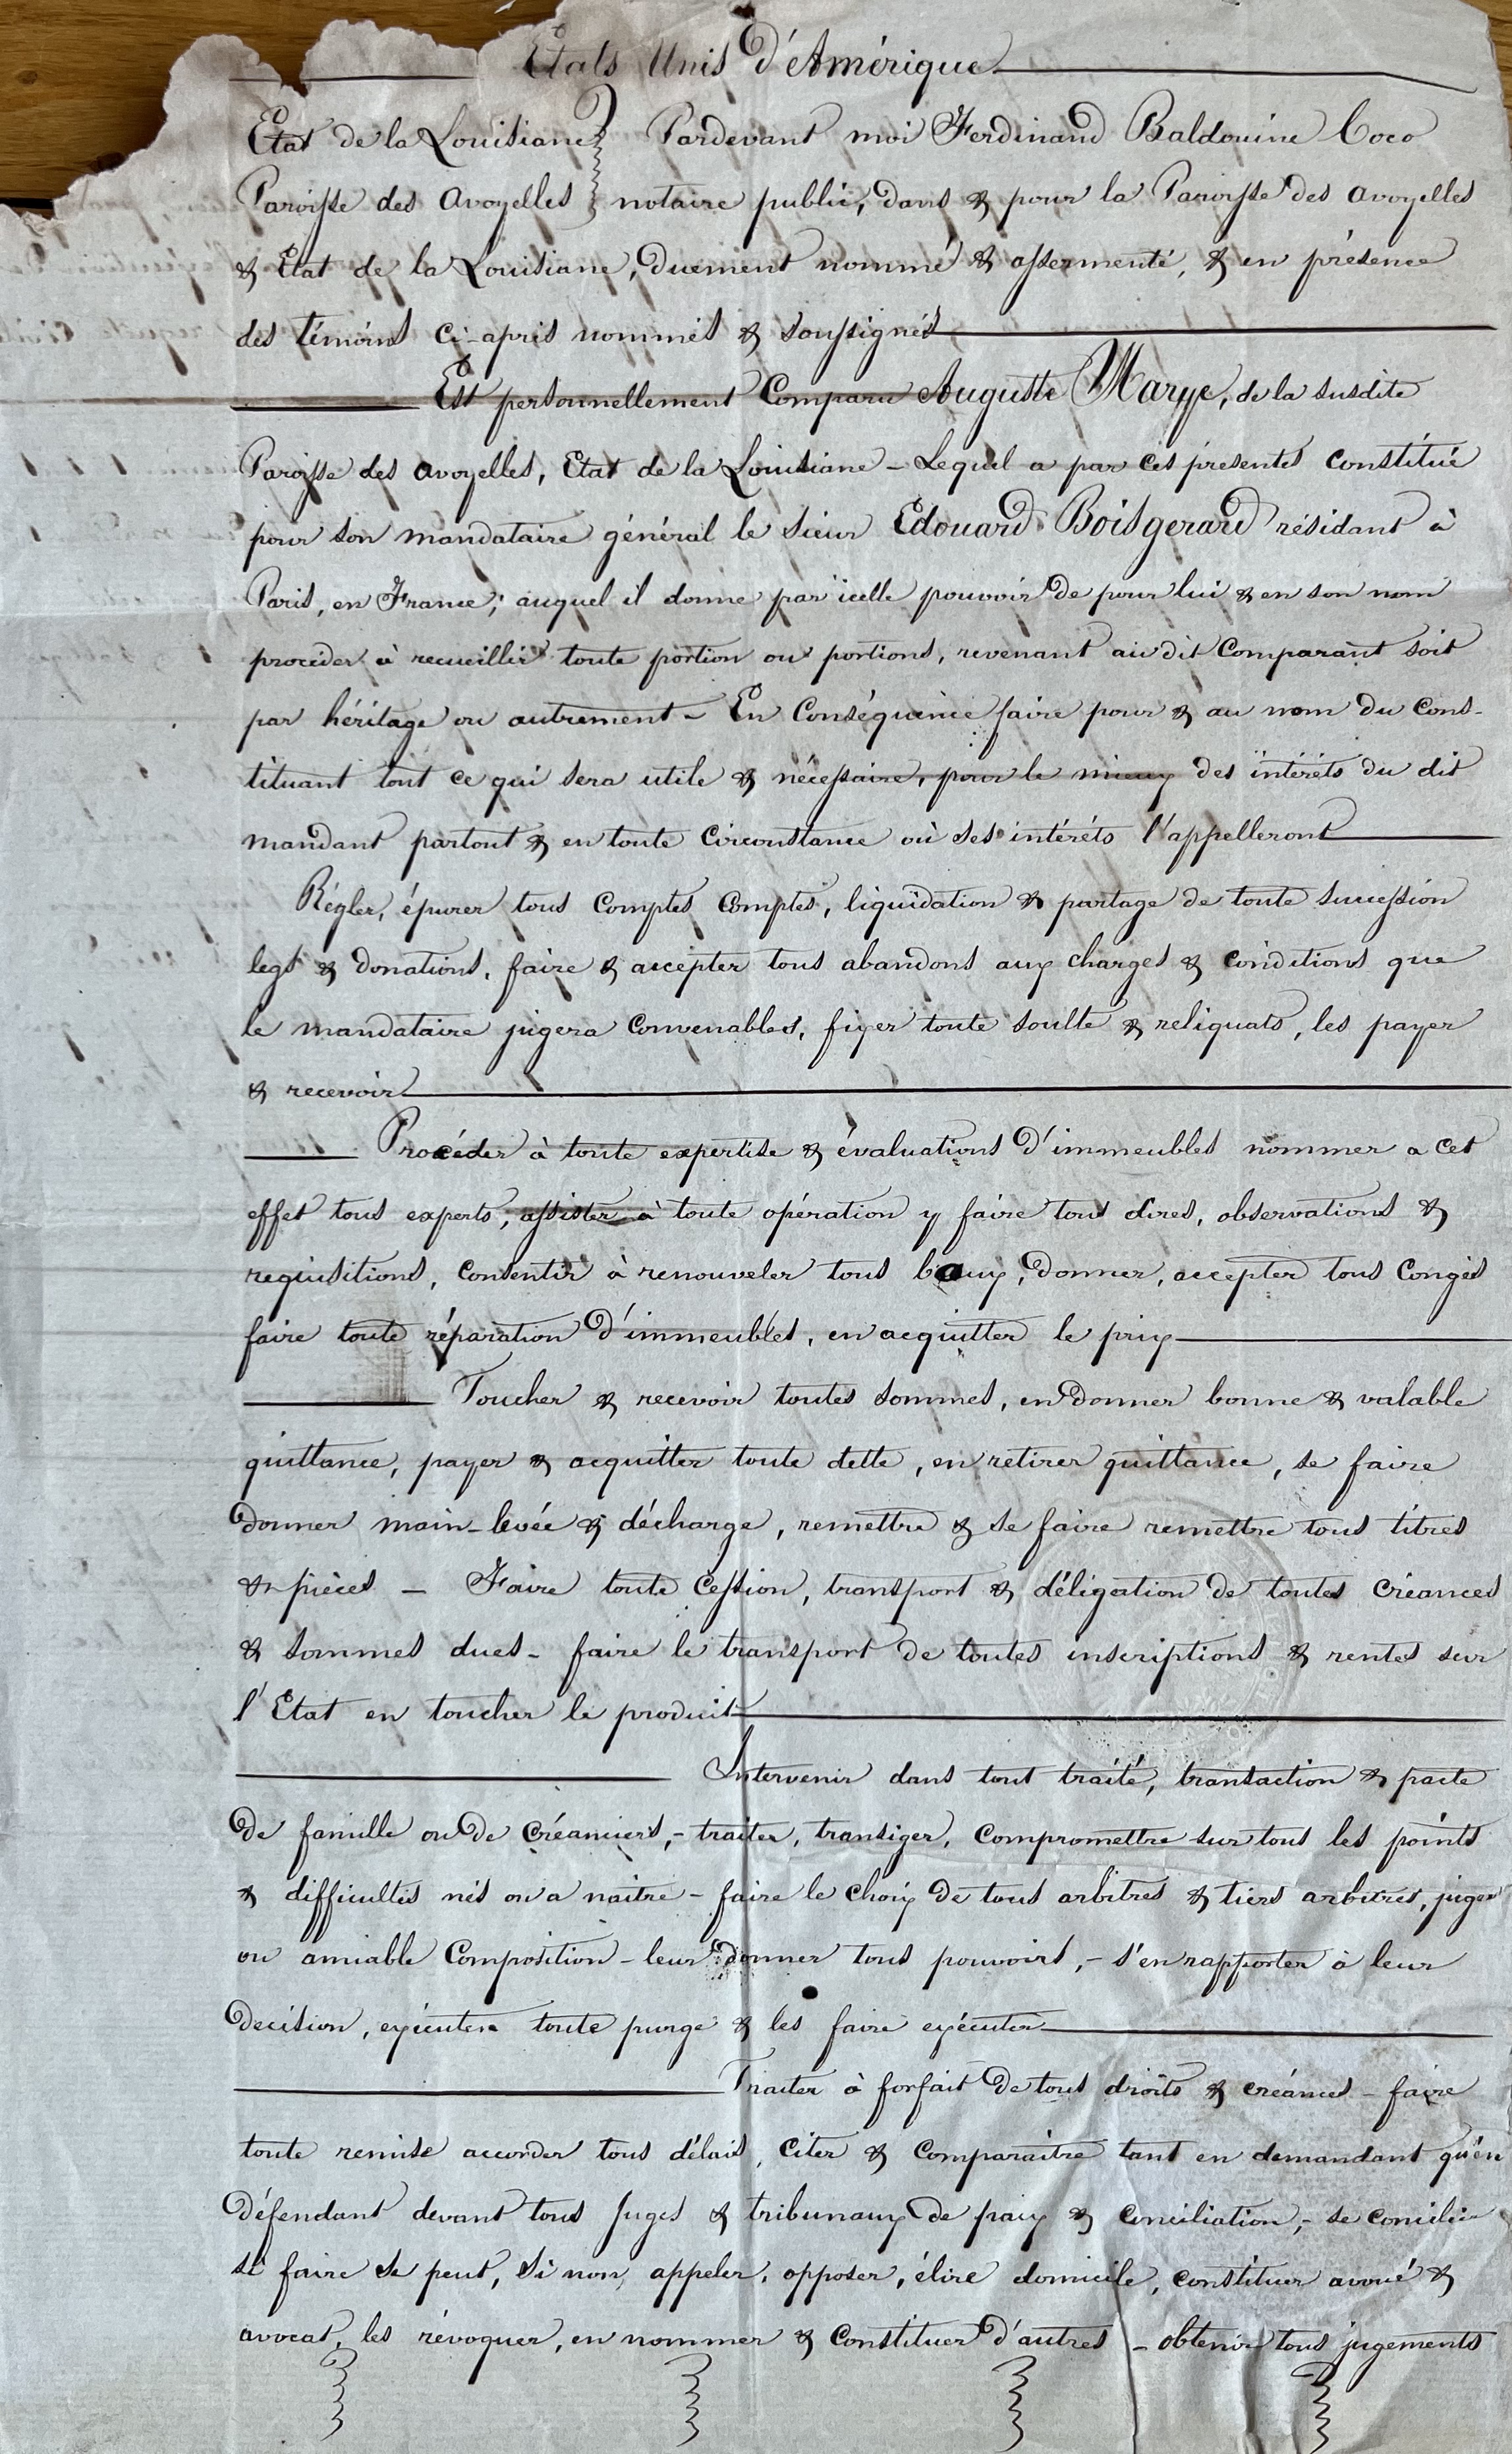 Etats Unis d'Amérique
Etat de la Louisiane Pardevant moi Ferdinand Baldouine Coco
Paroisse des Avoyelles notaire public, dans & pour la Paroisse des avoyelles
& Etat de la Louisiane, duement nommé & assermenté, & en présence
des témoins ci-après nommés & soussignés
Est personnellement Comparu Auguste Marye, de la susdite
Paroisse des avoyelles, Etat de la Louisiane - Lequel a par ces présentes constitué
pour son mandataire général le Sieur Edouard Boisgerard résidant à
Paris, en France; auquel il donne par icelle pouvoir de pour lui & en son nom
procéder à recueillir toute portion ou portions, revenant au dit Comparant soit
par héritage ou autrement - En Conséquence faire pour & au nom du Cons-
tituant tout ce qui sera utile & nécessaire, pour le mieux des intérêts du dit
mandant partout & en toute circonstance où ses intérêts l'appelleront
Régler, épurer tous Comptes Comptes, liquidation & partage de toute succession
legs & donations, faire & accepter tous abandons aux charges & conditions que
le mandataire jugera convenables, fixer toute soulte & reliquats, les payer
& recevoir
Procéder à toute expertise & évaluations d'immeubles nommer a cet
effet tous experts, assister à toute opération y faire tous dires, observations &
requisitions, consentir à renouveler tous baux, donner, accepter tous Congés
faire toute réparation d'immeubles, en acquitter le prix
Toucher & recevoir toutes sommes, en donner bonne & valable
quittance, payer & acquitter toute dette, en retirer quittance, se faire
donner main-levée & décharge, remettre & se faire remettre tous titres
& pièces - Faire toute Cession, transport & délégation de toutes Créances
& sommes dues - faire le transport de toutes inscriptions & rentes sur
l'Etat en toucher le produit
Intervenir dans tout traité, transaction & pacte
de famille ou de Créanciers, - traiter, transiger, compromettre sur tous les points
& difficultés nés ou a naitre - faire le choix de tous arbitres & tiers arbitres, juger
ou amiable Composition - leur donner tous pouvoirs, - s'en rapporter à leur
decision, exécuter toute purge & les faire exécuter
Traiter à forfait de tous droits & créances - faire
toute remise accorder tous délais, citer & comparaitre tant en demandant qu'en
défendant devant tous Juges & tribunaux de paix & conciliation, - se concilier
si faire se peut, Si non, appeler, opposer, élire domicile, constituer avoué &
avocat, les révoquer, en nommer & constituer d'autres - obtenir tous jugements